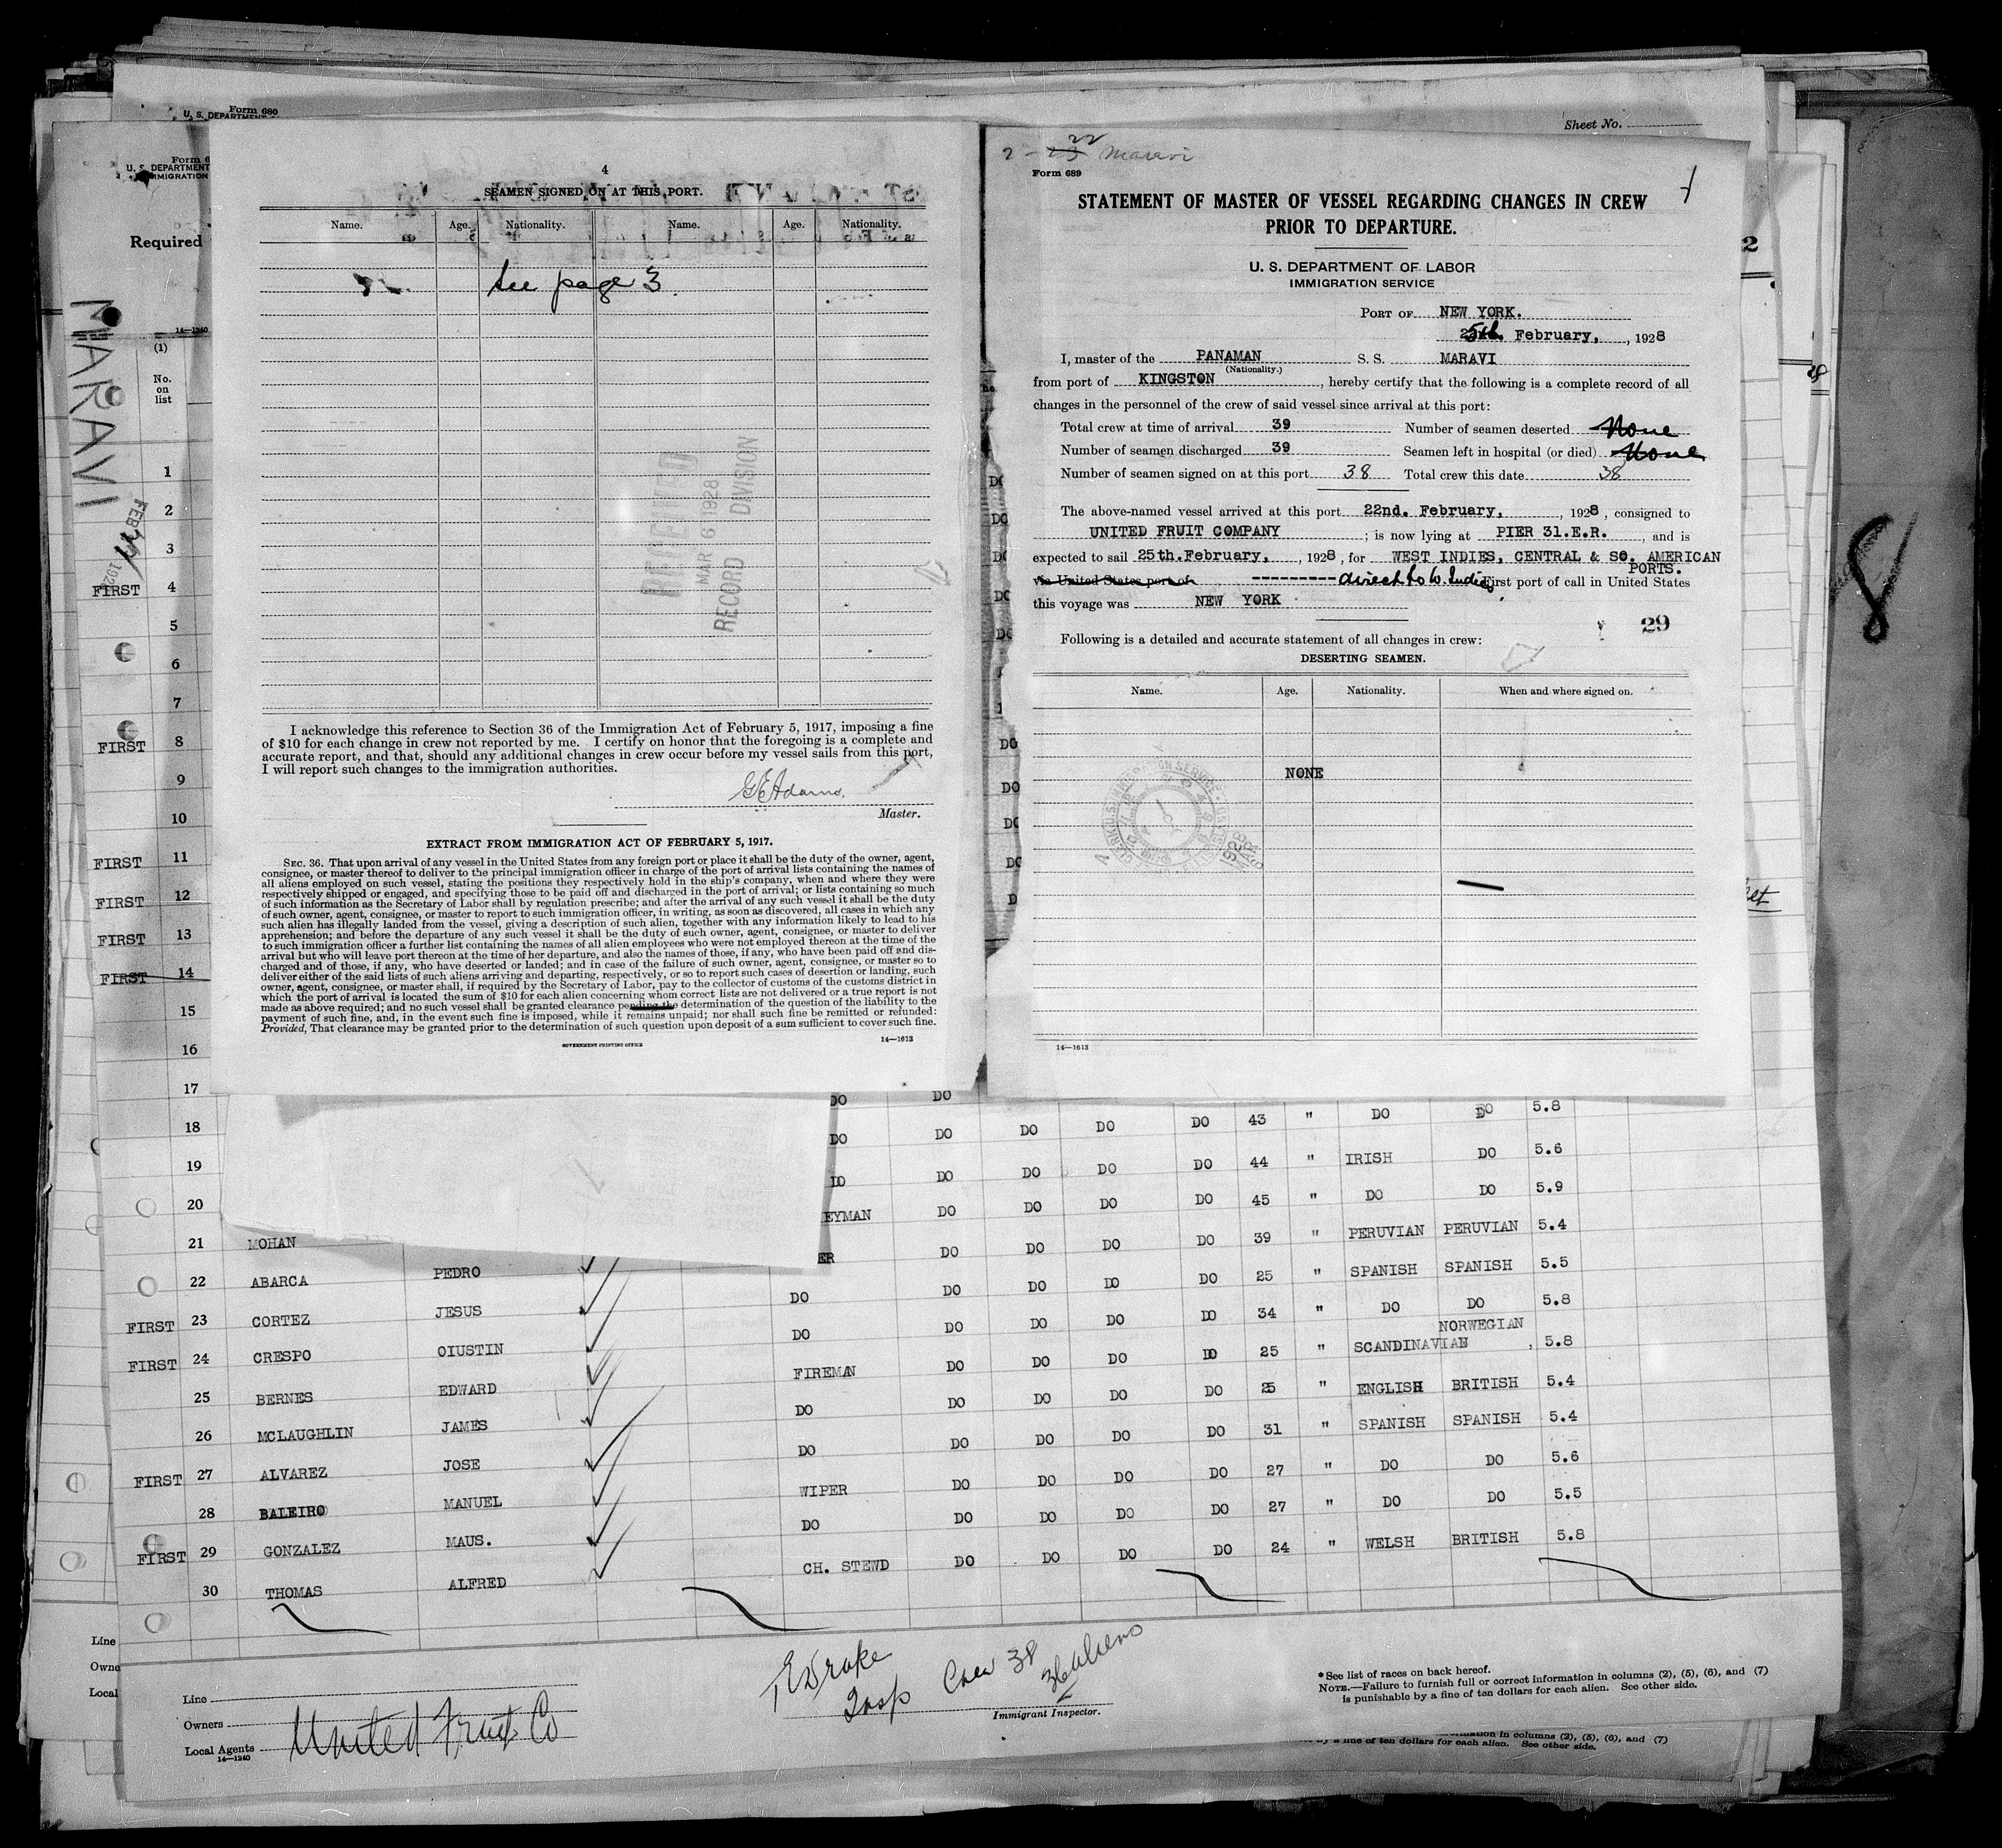 Form 680
U. S. DEPARTMENT
Sheet No.
U. S. DEPARTMENT
IMMIGRATION
Required
14—1240
MARAVI
FEB
1928
(1)
No.
on
list
4
SEAMEN SIGNED ON AT THIS PORT.
Name. Age. Nationality. Name. Age. Nationality.
See page 3
RECEIVED
MAR 6 1928
RECORD DIVISION
I acknowledge this reference to Section 36 of the Immigration Act of February 5, 1917, imposing a fine
of $10 for each change in crew not reported by me. I certify on honor that the foregoing is a complete and
accurate report, and that, should any additional changes in crew occur before my vessel sails from this port,
I will report such changes to the immigration authorities.
G E Adams.
Master.
EXTRACT FROM IMMIGRATION ACT OF FEBRUARY 5, 1917.
SEC. 36. That upon arrival of any vessel in the United States from any foreign port or place it shall be the duty of the owner, agent,
consignee, or master thereof to deliver to the principal immigration officer in charge of the port of arrival lists containing the names of
all aliens employed on such vessel, stating the positions they respectively hold in the ship's company, when and where they were
respectively shipped or engaged, and specifying those to be paid off and discharged in the port of arrival; or lists containing so much
of such information as the Secretary of Labor shall by regulation prescribe; and after the arrival of any such vessel it shall be the duty
of such owner, agent, consignee, or master to report to such immigration officer, in writing, as soon as discovered, all cases in which any
such alien has illegally landed from the vessel, giving a description of such alien, together with any information likely to lead to his
apprehension; and before the departure of any such vessel it shall be the duty of such owner, agent, consignee, or master to deliver
to such immigration officer a further list containing the names of all alien employees who were not employed thereon at the time of the
arrival but who will leave port thereon at the time of her departure, and also the names of those, if any, who have been paid off and dis-
charged and of those, if any, who have deserted or landed; and in case of the failure of such owner, agent, consignee, or master so to
deliver either of the said lists of such aliens arriving and departing, respectively, or so to report such cases of desertion or landing, such
owner, agent, consignee, or master shall, if required by the Secretary of Labor, pay to the collector of customs of the customs district in
which the port of arrival is located the sum of $10 for each alien concerning whom correct lists are not delivered or a true report is not
made as above required; and no such vessel shall be granted clearance pending the determination of the question of the liability to the
payment of such fine, and, in the event such fine is imposed, while it remains unpaid; nor shall such fine be remitted or refunded:
Provided, That clearance may be granted prior to the determination of such question upon deposit of a sum sufficient to cover such fine.
GOVERNMENT PRINTING OFFICE
14—1613
2 - 23 22 Maravi
Form 689
STATEMENT OF MASTER OF VESSEL REGARDING CHANGES IN CREW
PRIOR TO DEPARTURE.
U. S. DEPARTMENT OF LABOR
IMMIGRATION SERVICE
PORT OF NEW YORK.
25th February, , 1928
I, master of the PANAMAN S. S. MARAVI
(Nationality.)
from port of KINGSTON , hereby certify that the following is a complete record of all
changes in the personnel of the crew of said vessel since arrival at this port:
Total crew at time of arrival 39 Number of seamen deserted None
Number of seamen discharged 39 Seamen left in hospital (or died) None
Number of seamen signed on at this port 38 Total crew this date 38
The above-named vessel arrived at this port 22nd. February, , 1928 , consigned to
UNITED FRUIT COMPANY ; is now lying at PIER 31.E.R. , and is
expected to sail 25th.February, , 1928, for WEST INDIES, CENTRAL & SO. AMERICAN
PORTS.
via United States port of --------- direct to W. Indies First port of call in United States
this voyage was NEW YORK
29
Following is a detailed and accurate statement of all changes in crew:
DESERTING SEAMEN.
Name. Age. Nationality. When and where signed on.
NONE
14—1613
8
1
2
3
FIRST 4
5
6
7
FIRST 8
9
10
FIRST 11
FIRST 12
FIRST 13
FIRST 14
15
16
17 DO DO
18 DO DO DO DO DO 43 " DO DO 5.8
19 DO DO DO DO 44 " IRISH DO 5.6
20 EYMAN DO DO DO DO 45 " DO DO 5.9
21 MOHAN ER DO DO DO DO 39 " PERUVIAN PERUVIAN 5.4
22 ABARCA PEDRO DO DO DO DO DO 25 " SPANISH SPANISH 5.5
FIRST 23 CORTEZ JESUS DO DO DO DO DO 34 " DO DO 5.8
FIRST 24 CRESPO OIUSTIN FIREMAN DO DO DO DO 25 " SCANDINAVIAN NORWEGIAN 5.8
25 BERNES EDWARD DO DO DO DO DO 25 " ENGLISH BRITISH 5.4
26 MCLAUGHLIN JAMES DO DO DO DO DO 31 " SPANISH SPANISH 5.4
FIRST 27 ALVAREZ JOSE WIPER DO DO DO DO 27 " DO DO 5.6
28 BALEIRO MANUEL DO DO DO DO DO 27 " DO DO 5.5
FIRST 29 GONZALEZ MAUS. CH. STEWD DO DO DO DO 24 " WELSH BRITISH 5.8
30 THOMAS ALFRED
Line
Owners
Local Agents
14—1240
United Fruit Co
T E Drake
Insp Crew 38
36 aliens
Immigrant Inspector.
*See list of races on back hereof.
NOTE.—Failure to furnish full or correct information in columns (2), (5), (6), and (7)
is punishable by a fine of ten dollars for each alien. See other side.
Line
Owne
Local
in columns (2), (5), (6), and (7)
by a fine of ten dollars for each alien. See other side.